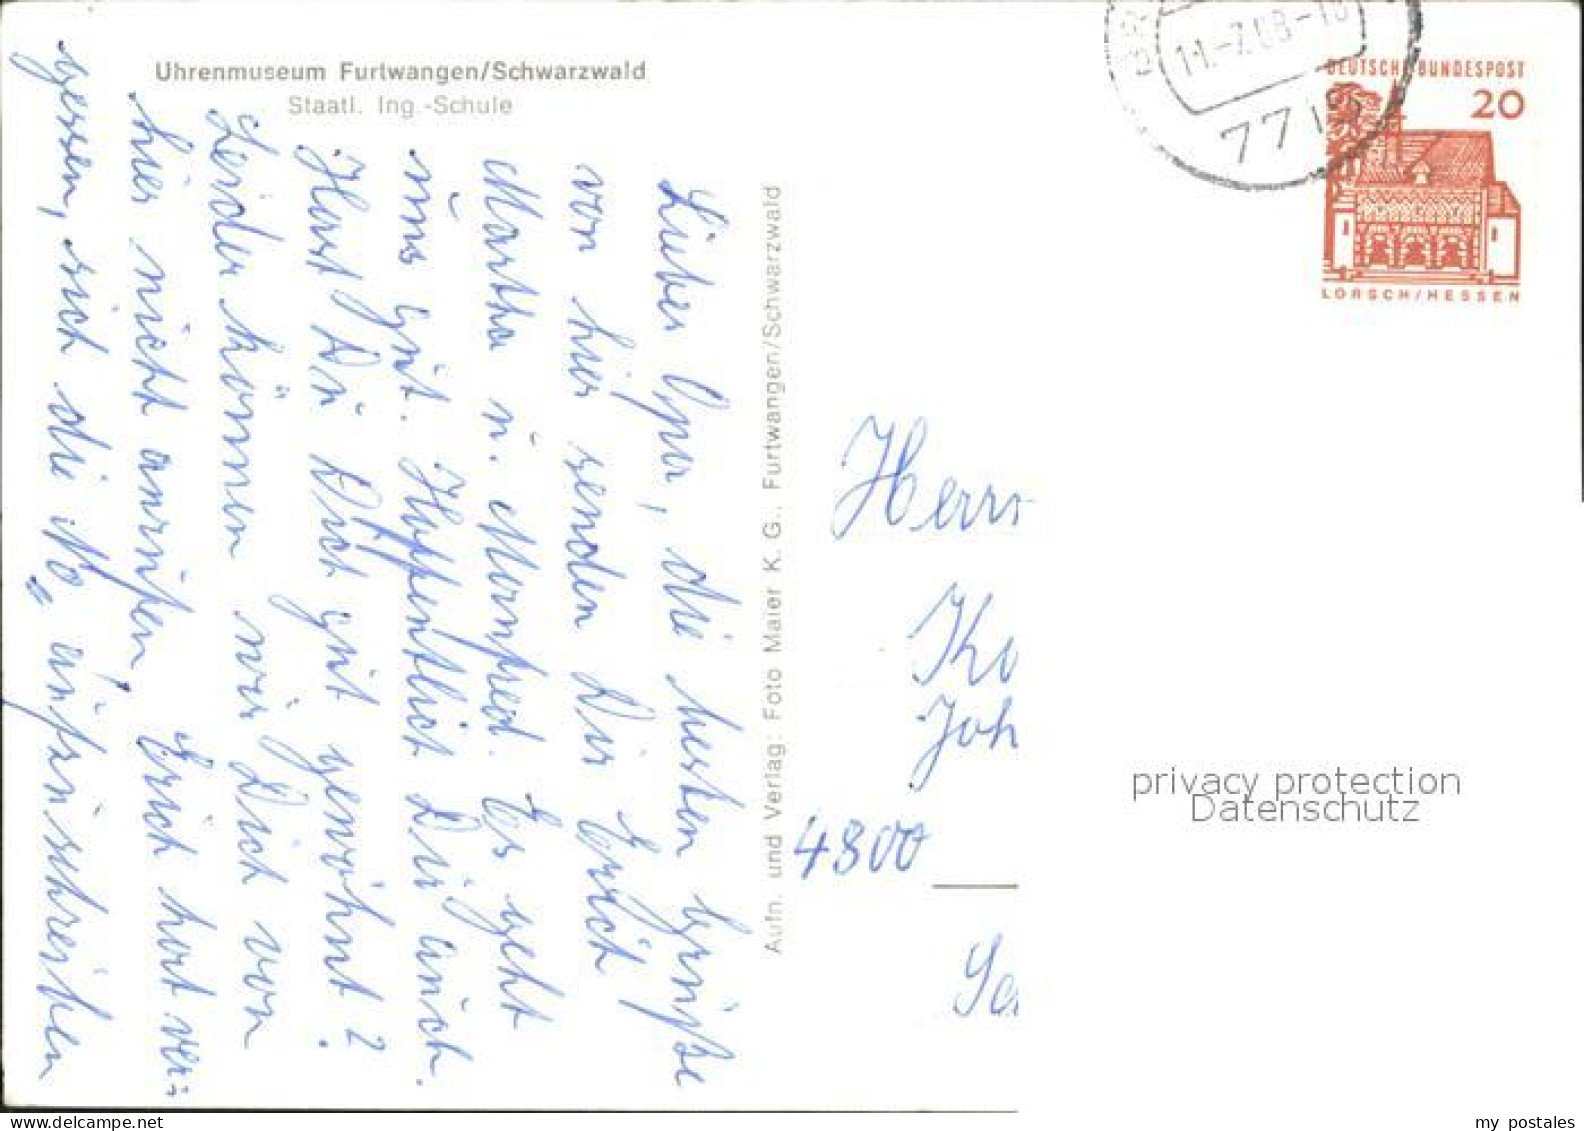 Uhrenmuseum Furtwangen/Schwarzwald
Staatl. Ing.-Schule
Lieber Opa, die besten Grüße
von hier senden Dir Erich
Martha u. Manfred. Es geht
uns gut. Hoffentlich Dir auch.
Hast Du Dich gut gewöhnt?
Leider können wir Dich von
hier nicht anrufen, Erich hat ver=
gessen, sich die No, aufzuschreiben
Aufn. und Verlag: Foto Maier K. G., Furtwangen/Schwarzwald
7713
DEUTSCHE BUNDESPOST
20
LORSCH/HESSEN
Herrn
Ko
Joh
4800
privacy protection
Datenschutz
my postales